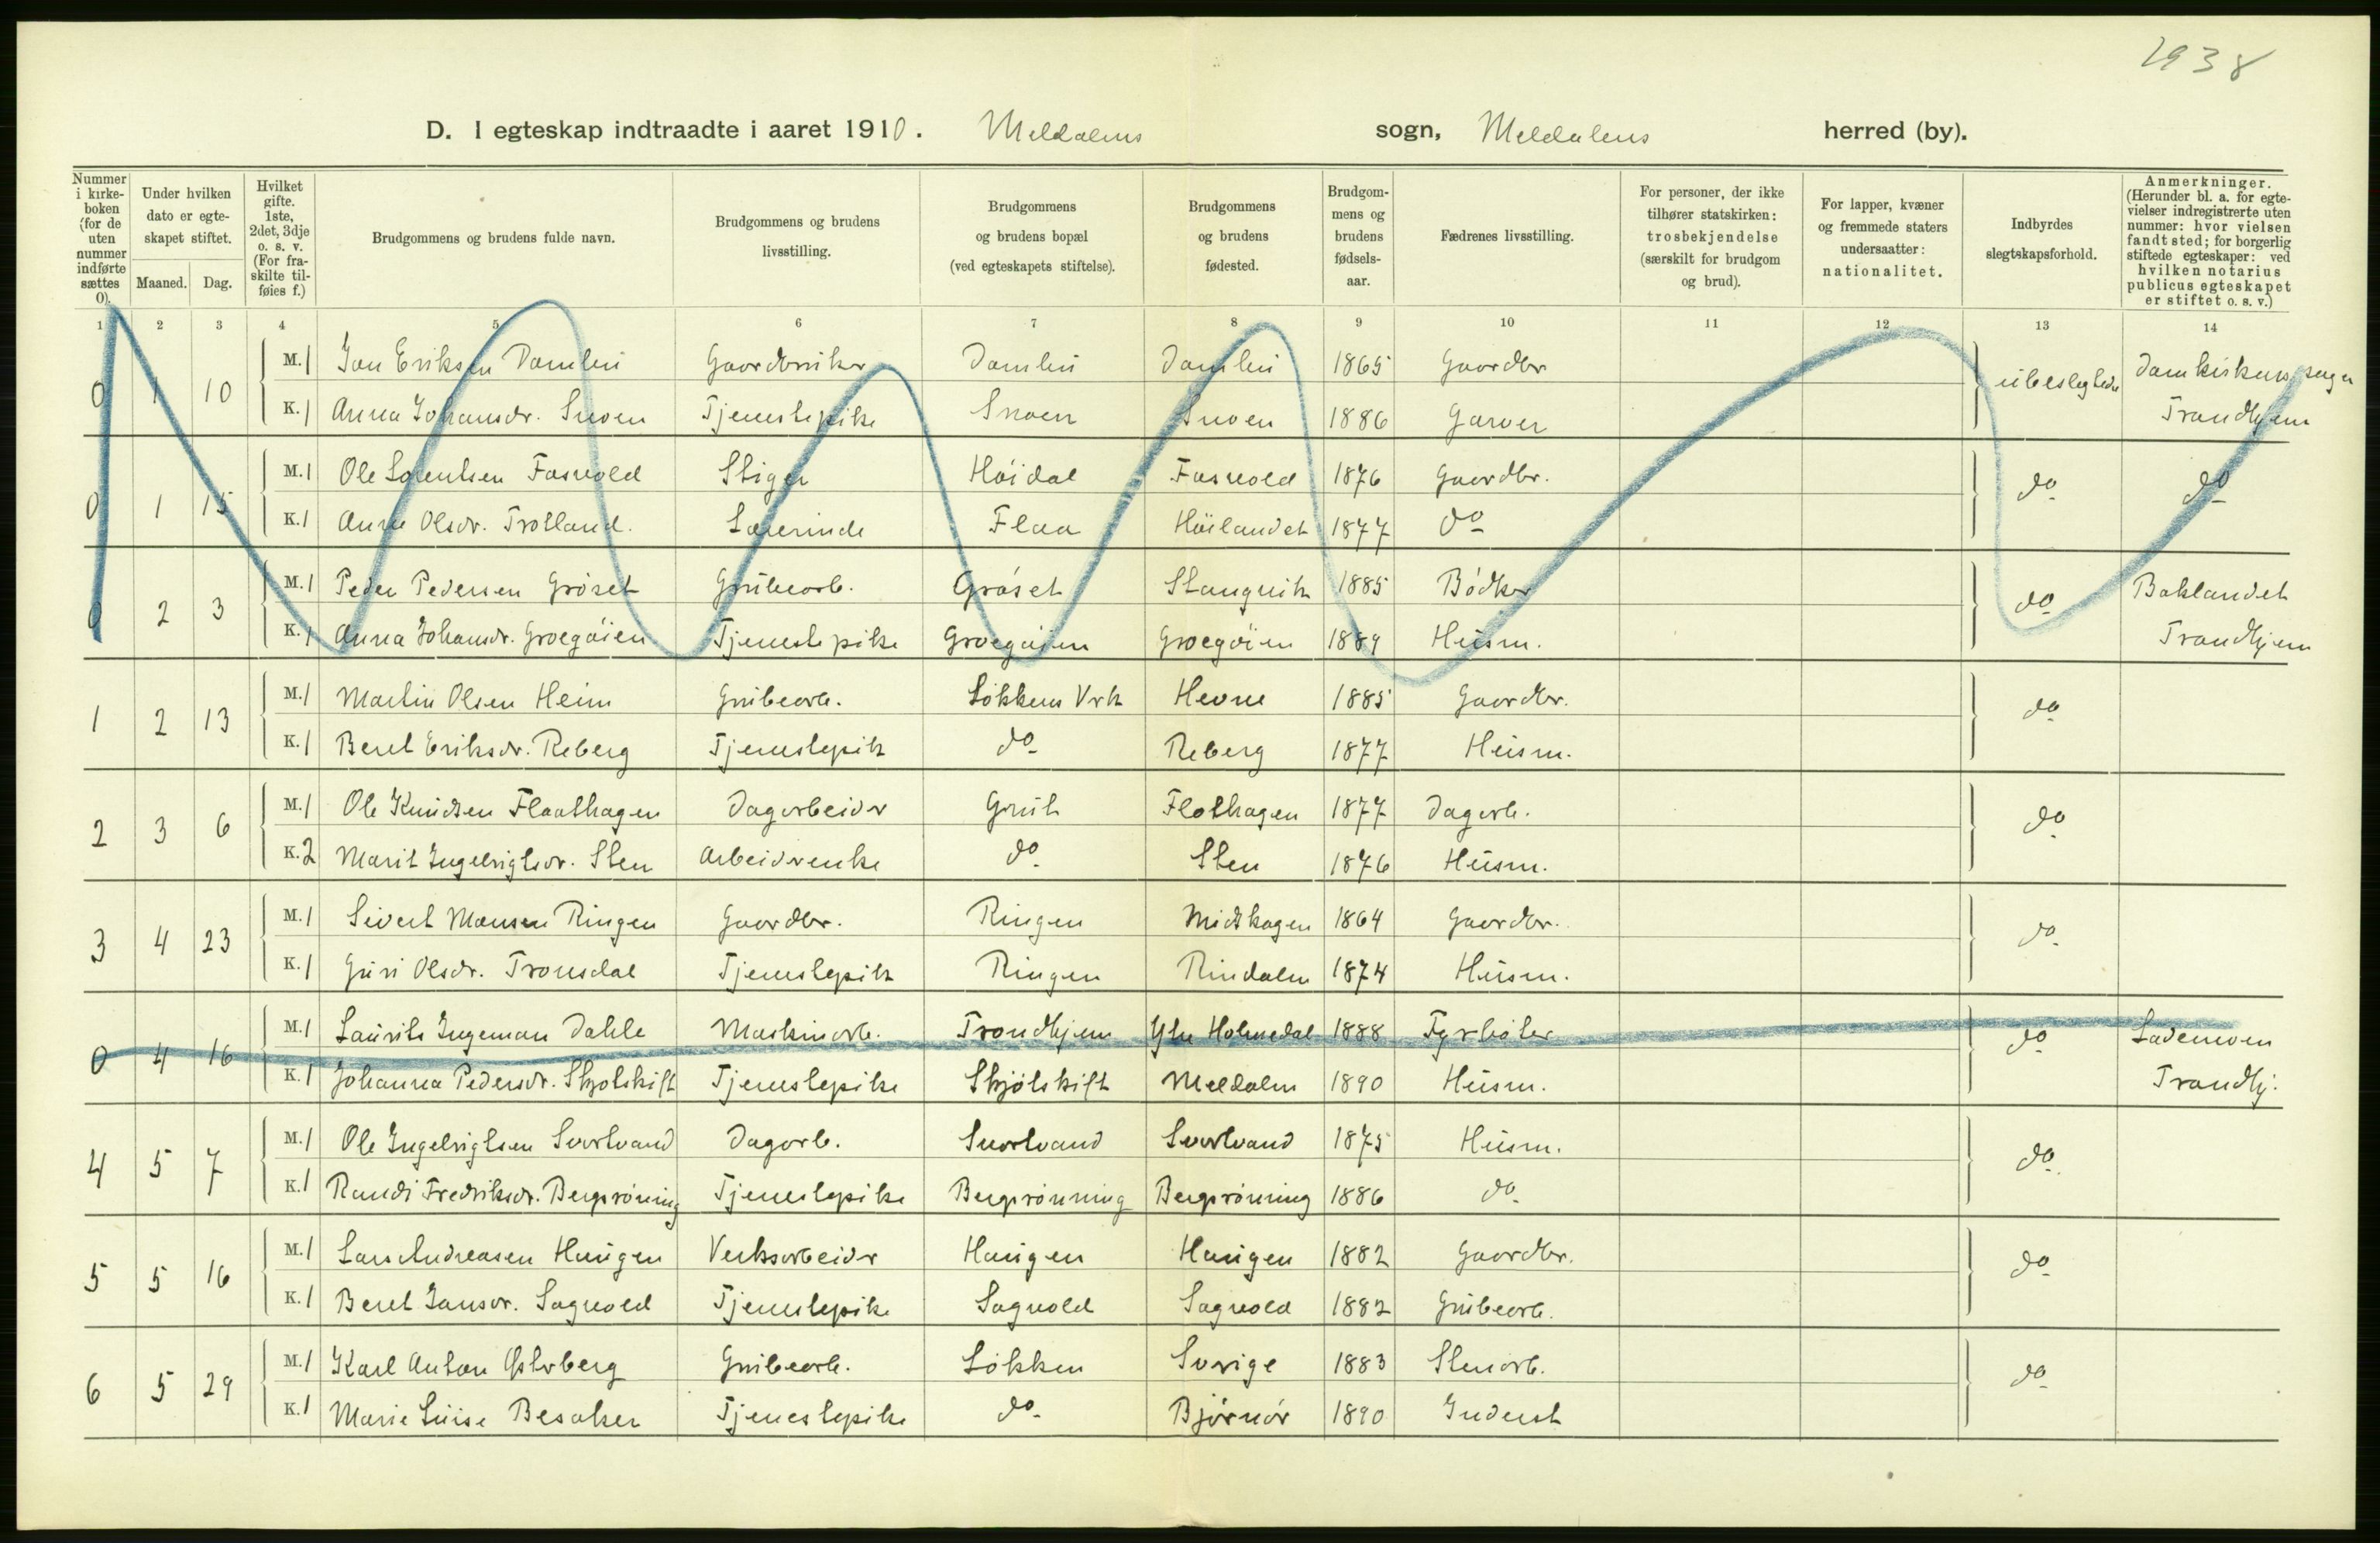 2938
D. I egteskap indtraadte i aaret 1910. Meldalens sogn, Meldalens herred (by).
Nummer i kirkeboken (for de uten nummer indførte sættes 0).
Under hvilken dato er egteskapet stiftet.
Maaned. Dag.
Hvilket gifte. 1ste, 2det, 3dje o. s. v. (For fraskilte tilføies f.)
Brudgommens og brudens fulde navn.
Brudgommens og brudens livsstilling.
Brudgommens og brudens bopæl (ved egteskapets stiftelse).
Brudgommens og brudens fødested.
Brudgommens og brudens fødselsaar.
Fædrenes livsstilling.
For personer, der ikke tilhører statskirken: trosbekjendelse (særskilt for brudgom og brud).
For lapper, kvæner og fremmede staters undersaatter: nationalitet.
Indbyrdes slegtskapsforhold.
Anmerkninger. (Herunder bl. a. for egtevielser indregistrerte uten nummer: hvor vielsen fandt sted; for borgerlig stiftede egteskaper: ved hvilken notarius publicus egteskapet er stiftet o. s. v.)
1 2 3 4 5 6 7 8 9 10 11 12 13 14
0 1 10 M. 1 Jon Eriksen Damlien Gaardbruker Damlien Damlien 1865 Gaardbr ubeslegtede Domkirkens sogn
K. 1 Anna Johansdr. Snoen Tjenestepike Snoen Snoen 1886 Garver Trondhjem
0 1 15 M. 1 Ole Lorentsen Fasvold Stiger Höidal Fasvold 1876 Gaardbr. do do
K. 1 Anne Olsdr. Trötland. Lærerinde Flaa Höilandet 1877 do
0 2 3 M. 1 Peder Pedersen Gröset Grubearb. Gröset Stangvik 1885 Bödker do Baklandet
K. 1 Anna Johansdr. Groegöien Tjenestepike Groegöien Groegöien 1889 Husm. Trondhjem
1 2 13 M. 1 Martin Olsen Heim Grubearb. Lökkens Vrk Hevne 1885 Gaardbr. do
K. 1 Beret Eriksdr. Reberg Tjenestepik do Reberg 1877 Husm.
2 3 6 M. 1 Ole Knudsen Flaathagen Dagarbeider Grut Flothagen 1877 Dagarb. do
K. 2 Marit Ingebrigtsdr. Sten Arbeiderenke do Sten 1876 Husm.
3 4 23 M. 1 Sivert Monsen Ringen Gaardbr. Ringen Midthagen 1864 Gaardbr. do
K. 1 Guri Olsdr. Tronsdal Tjenestepik Ringen Rindalen 1874 Husm.
0 4 16 M. 1 Laurits Ingeman Dahle Maskinarb. Trondhjem Ytre Holmedal 1888 Fyrböter do Lademoen
K. 1 Johanna Pedersdr. Skjölskift Tjenestepike Skjölskift Meldalen 1890 Husm. Trondhj.
4 5 7 M. 1 Ole Ingebrigtsen Svartvand Dagarb. Svartvand Svartvand 1875 Husm. do
K. 1 Randi Fredriksdr. Bergsrönning Tjenestepike Bergsrönning Bergsrönning 1886 do
5 5 16 M. 1 Lars Andreasen Haugen Verksarbeider Haugen Haugen 1882 Gaardbr. do
K. 1 Beret Jansdr. Sagvold Tjenestepike Sagvold Sagvold 1882 Grubearb.
6 5 29 M. 1 Karl Anton Østerberg Grubearb. Lökken Sverige 1883 Stenarb. do
K. 1 Marie Luise Besaker Tjenestepike do Björnör 1890 Inderst